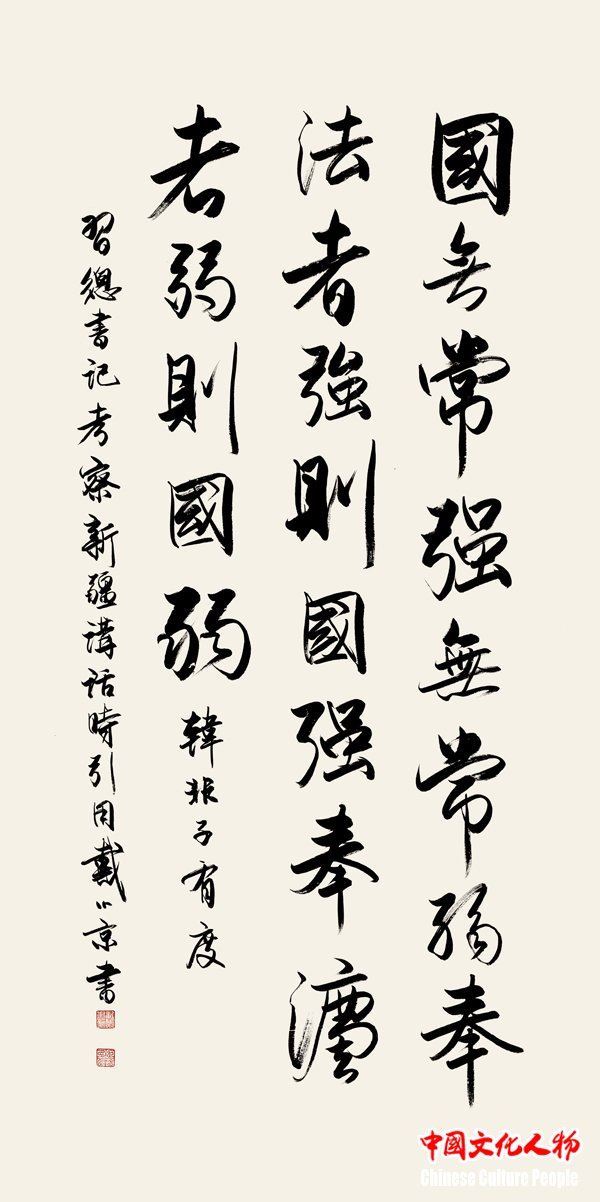 國無常强無常弱奉
法者強則國强奉灋
者弱則國弱 韓非子有度
習總書記考察新疆講話時引用戴小京書
中國文化人物
Chinese Culture People